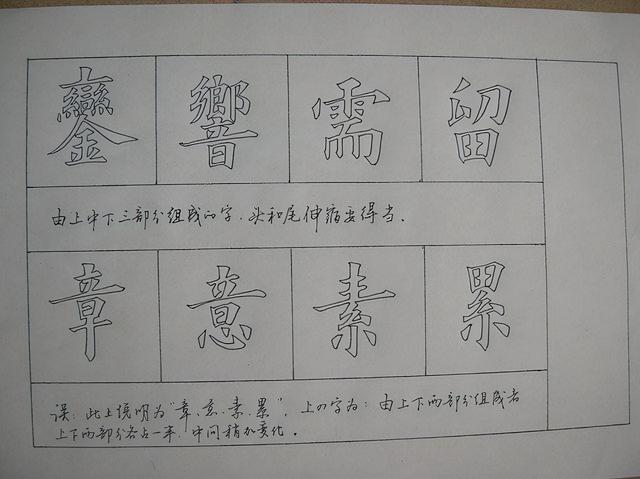 鑾 響 需 留
由上中下三部分组成的字.头和尾伸缩要得当.
章 意 素 累
误:此上说明为“章、意、素、累”.上の字为:由上下两部分组成者
上下两部分各占一半.中间稍加变化.